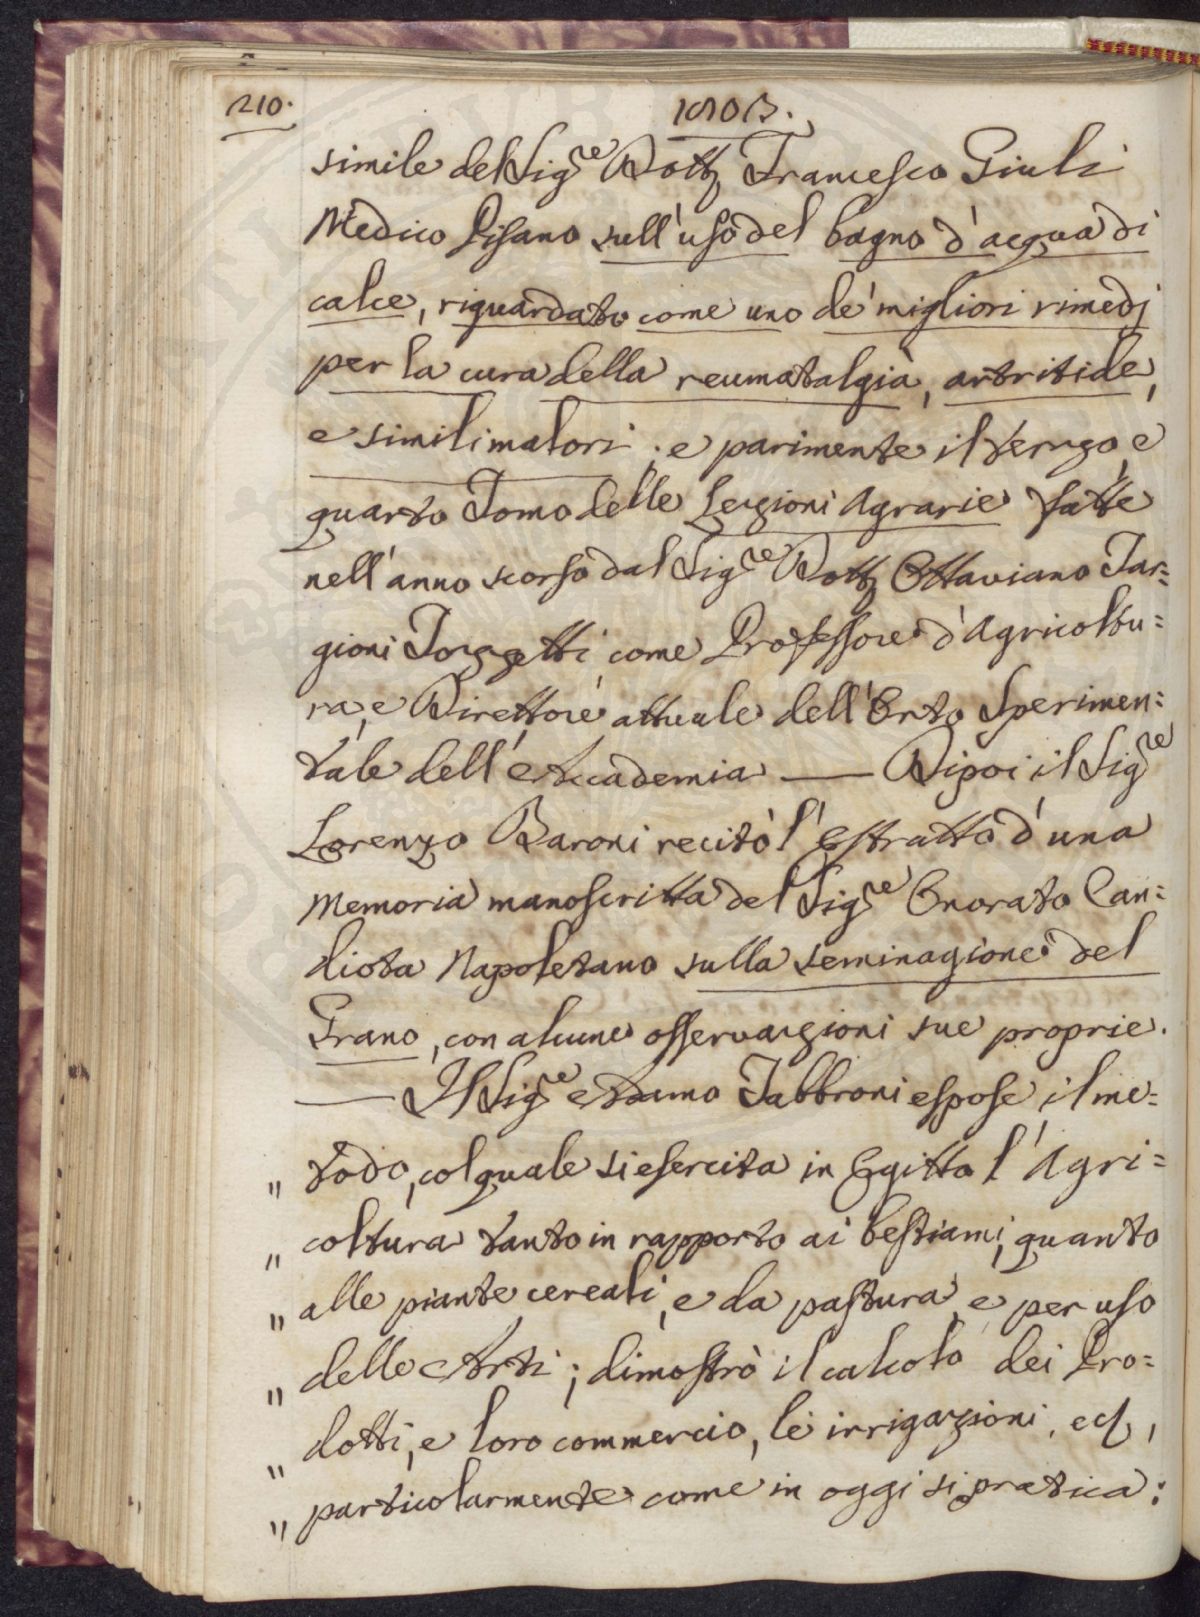 210.
1803.
simile del Sig.re Dott. Francesco Giuli
Medico Pisano sull'uso del bagno d'acqua di
calce, riguardato come uno de' migliori rimedj
per la cura della reumatalgia, artritide,
e simili malori; e parimente il terzo, e
quarto Tomo delle Lezioni Agrarie fatte
nell'anno scorso dal Sig.re Dott. Ottaviano Tar=
gioni Tozzetti come Professore d'Agricoltu=
ra, e Direttore attuale dell'Orto Sperimen=
tale dell'Accademia —— Dipoi il Sig.re
Lorenzo Baroni recitò l'Estratto d'una
Memoria manoscritta del Sig.re Onorato Can=
diota Napoletano sulla seminagione del
Grano, con alcune osservazioni sue proprie.
—— Il Sig.re Adamo Fabbroni espose il me=
" todo, col quale si esercita in Egitto l'Agri=
" coltura tanto in rapporto ai bestiami, quanto
" alle piante cereali, e da pastura, e per uso
" delle Arti; dimostrò il calcolo dei Pro=
" dotti, e loro commercio, le irrigazioni, ec.,
" particolarmente come in oggi si pratica: